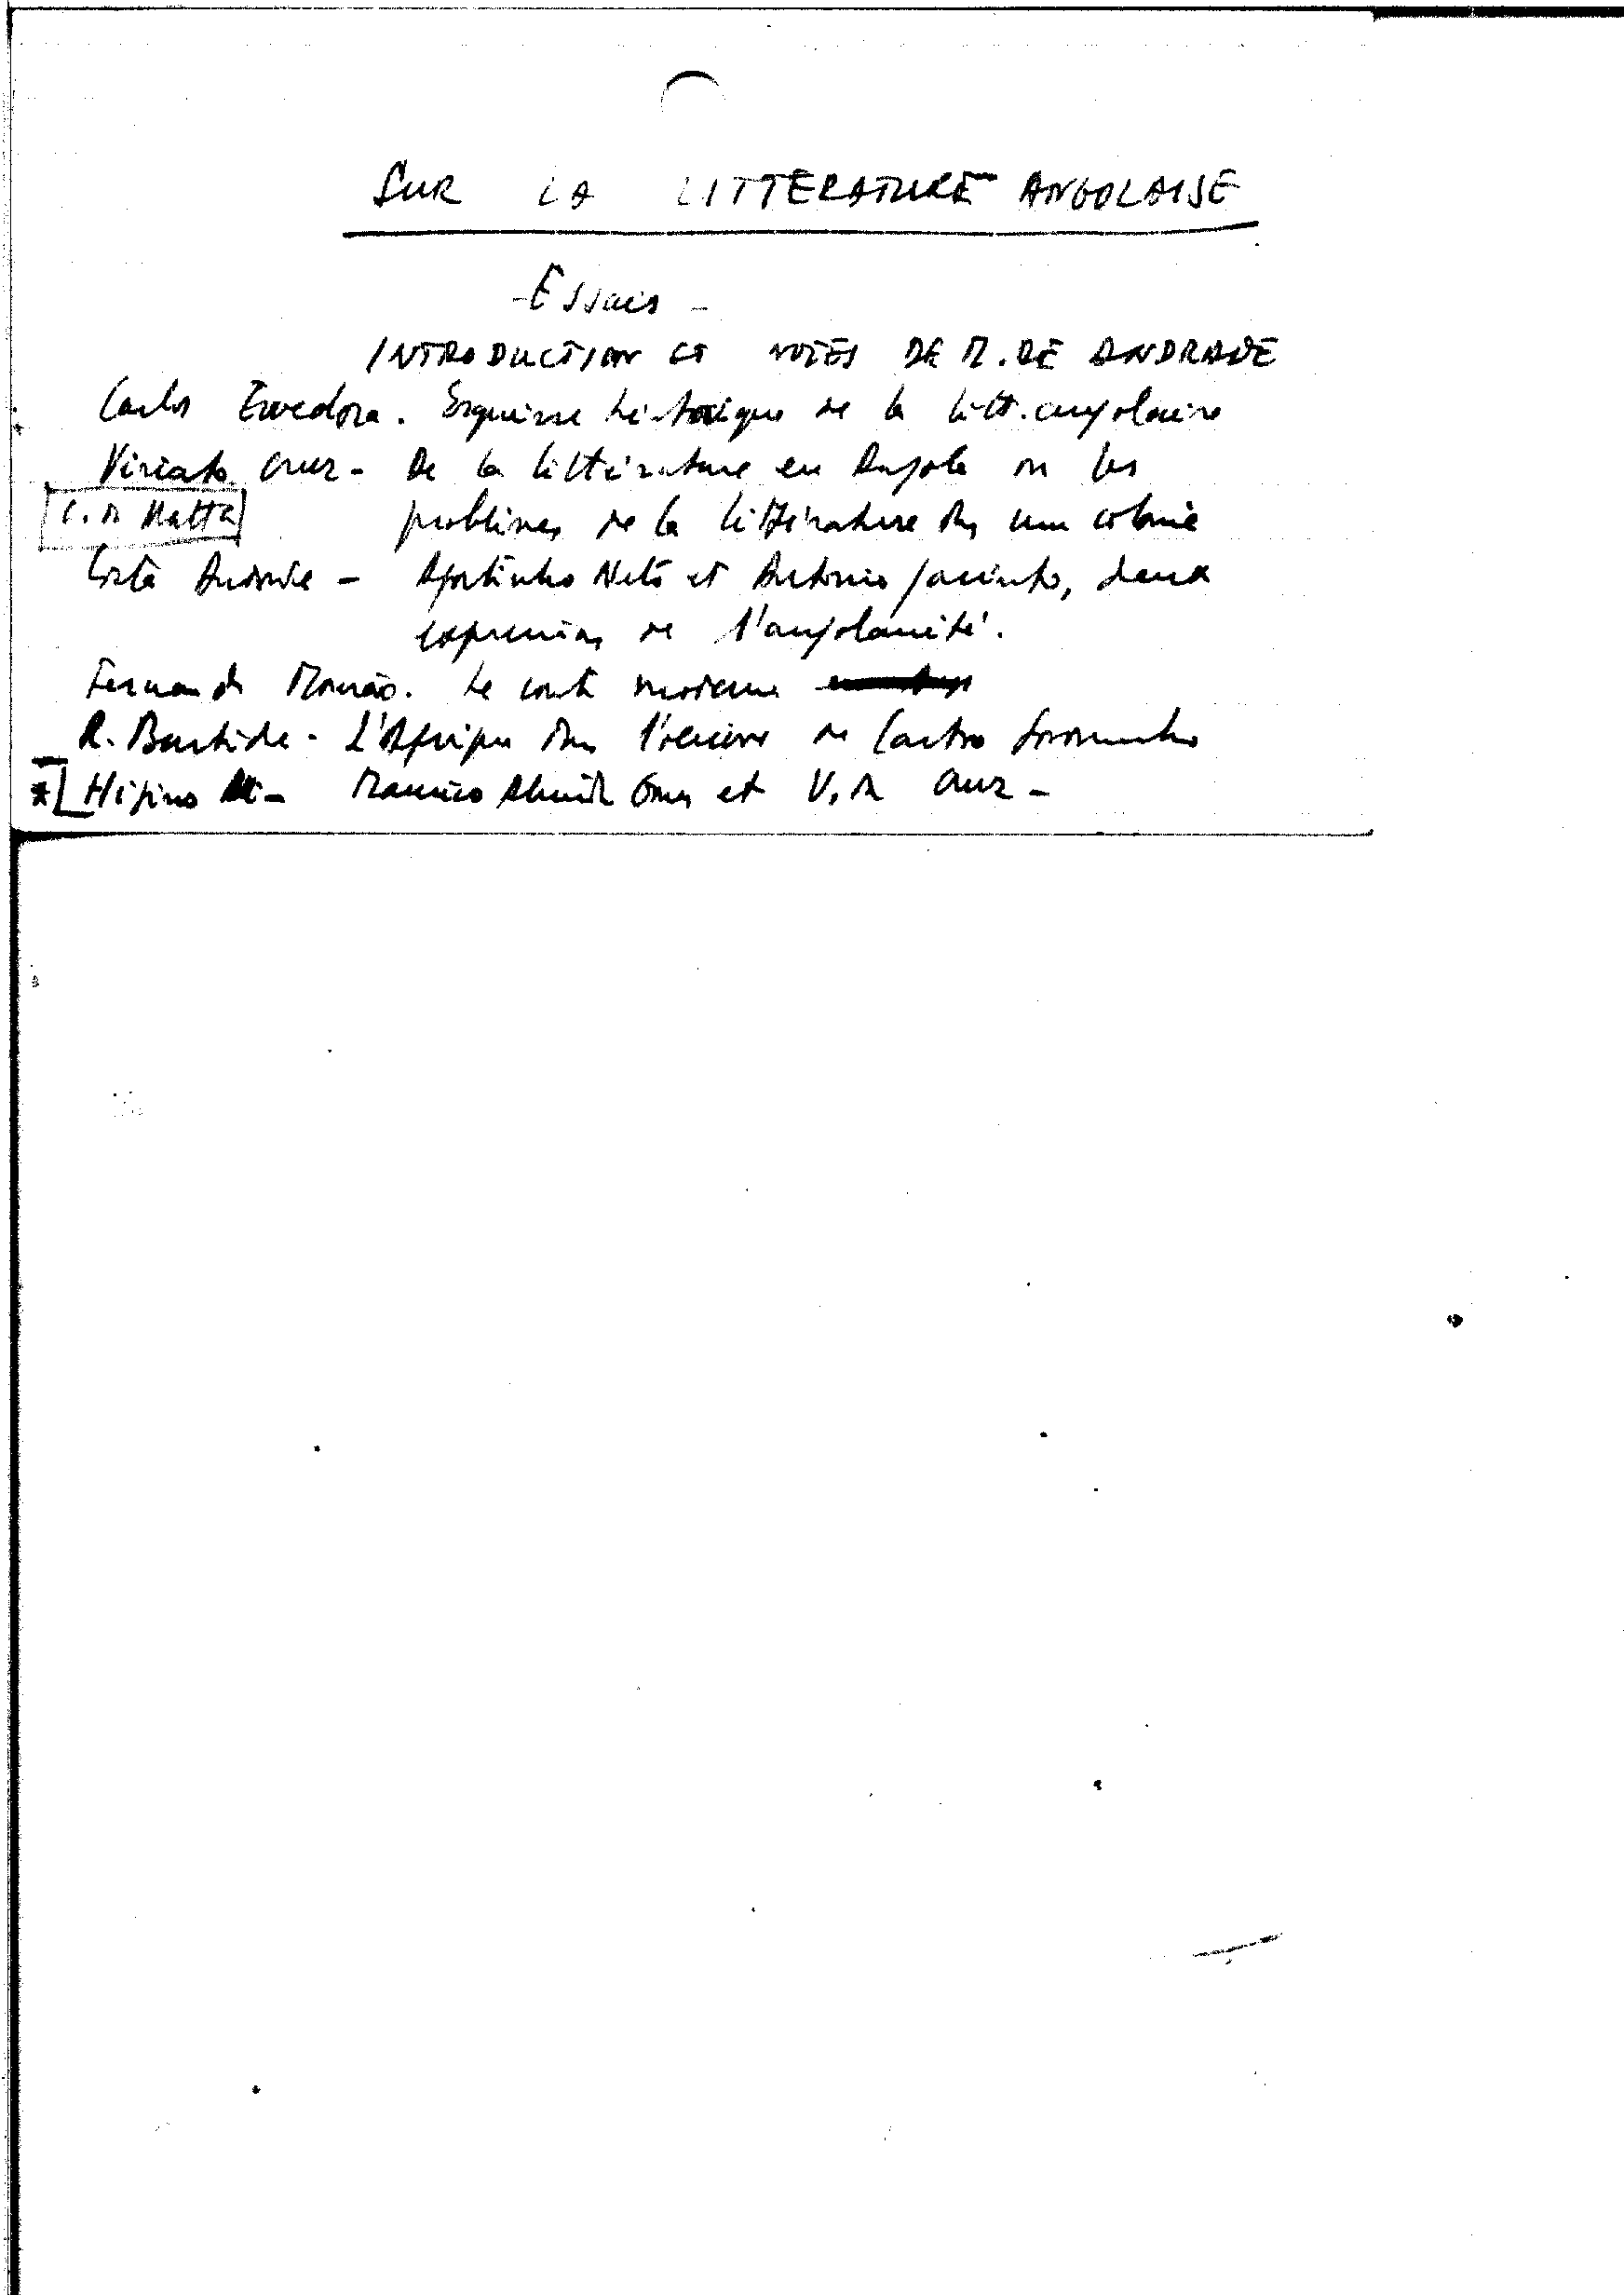 SUR LA LITTERATURE ANGOLAISE
- Essais -
INTRODUCTION ET NOTES DE M. DE ANDRADE
Carlos Ervedosa. Esquisse historique de la litt. angolaise
Viriato Cruz - De la littérature en Angola ou les
C. da Matta
problèmes de la littérature ds une colonie
Costa Andrade - Agostinho Neto et Antonio Jacinto, deux
expressions de l'angolanité.
Fernando Mourão. Le conte moderne
R. Bastide - L'Afrique dans l'oeuvre de Castro Soromenho
* Higino - Mauricio Almeida Gomes et V. da Cruz -